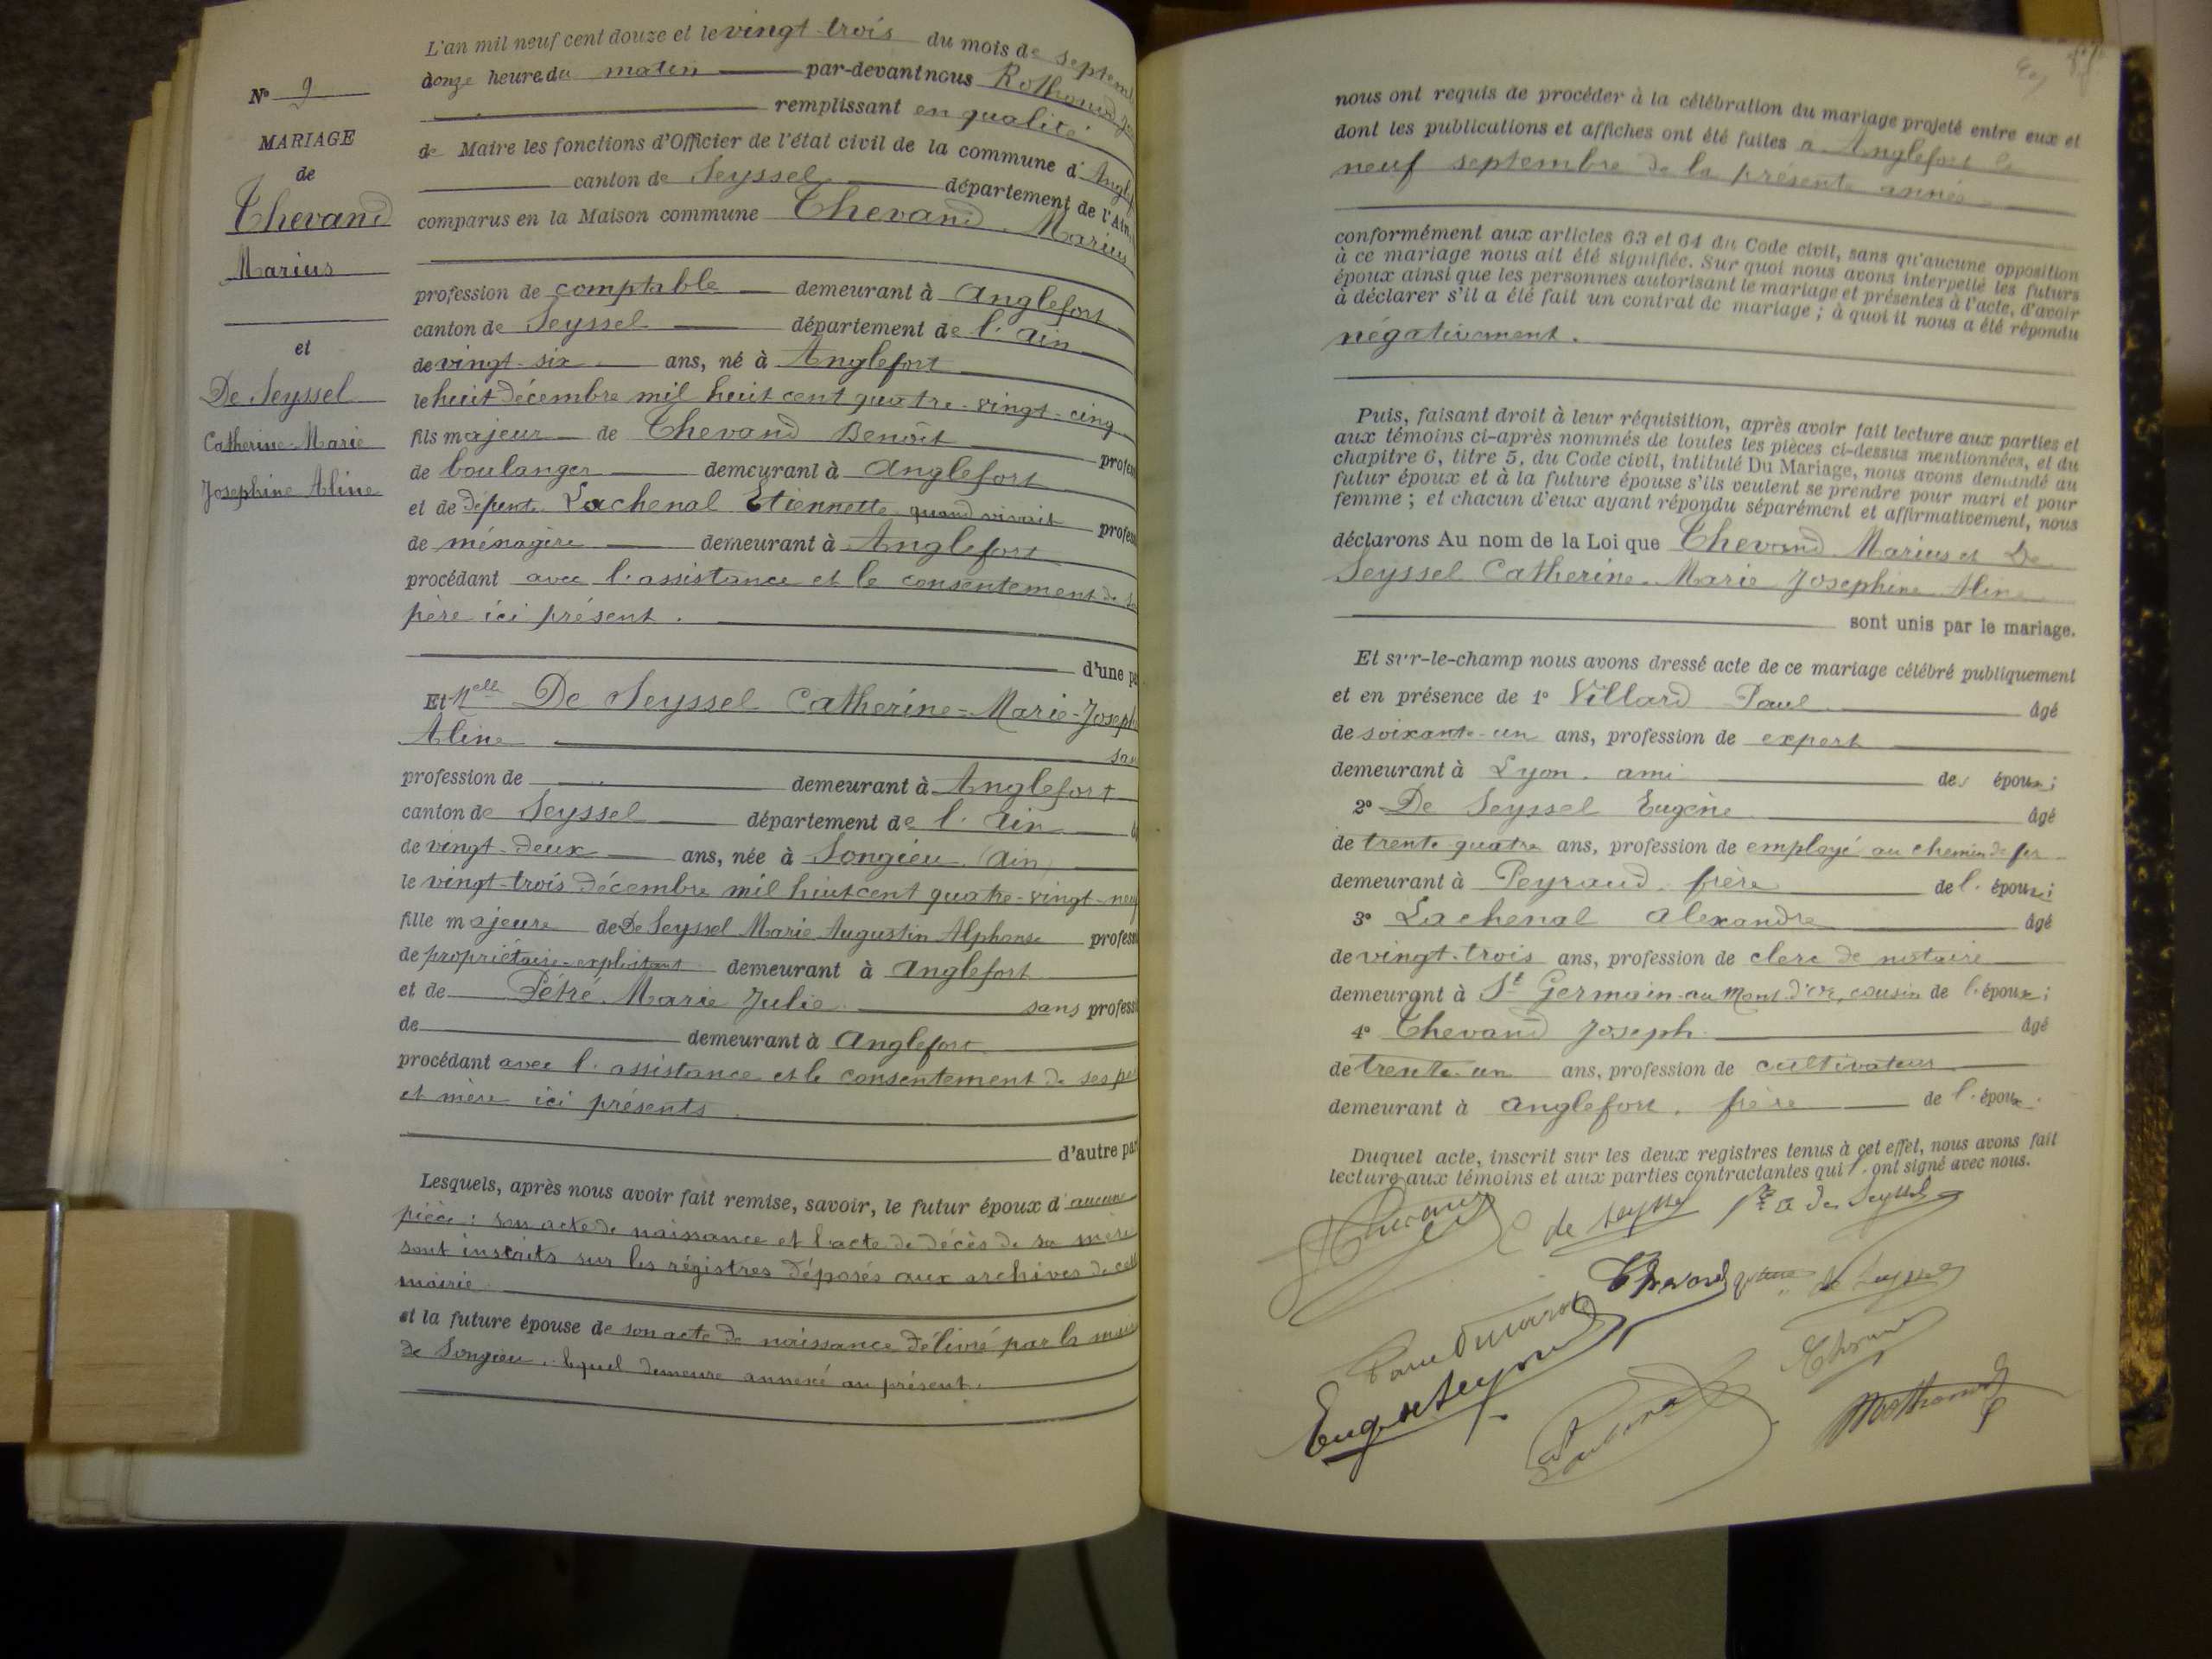 N° 9
MARIAGE
de
Thevand
Marius
et
De Seyssel
Catherine-Marie
Josephine Aline
L'an mil neuf cent douze et le vingt-trois du mois de septem
onze heure du matin par-devant nous Rothonod
remplissant en qualité
de Maire les fonctions d'Officier de l'état civil de la commune d'Anglef
canton de Seyssel département de l'Ain,
comparus en la Maison commune Thevand Marius
profession de comptable demeurant à Anglefort
canton de Seyssel département de l'Ain
de vingt-six ans, né à Anglefort
le huit décembre mil huit cent quatre-vingt-cinq
fils majeur de Thevand Benoît profes
de boulanger demeurant à Anglefort
et de défunte Lachenal Etiennette quand vivait profess
de ménagère demeurant à Anglefort
procédant avec l'assistance et le consentement de s
père ici présent.
d'une pa
Et Melle De Seyssel Catherine-Marie-Joseph
Aline sans
profession de demeurant à Anglefort
canton de Seyssel département de l'Ain
de vingt-deux ans, née à Songieu (Ain)
le vingt-trois décembre mil huit cent quatre-vingt-neuf
fille majeure de De Seyssel Marie Augustin Alphonse professi
de propriétaire-exploitant demeurant à Anglefort
et de Pétré Marie Julie sans professi
de demeurant à Anglefort
procédant avec l'assistance et le consentement de ses pè
et mère ici présents
d'autre par
Lesquels, après nous avoir fait remise, savoir, le futur époux d'aucune
pièce: son acte de naissance et l'acte de décès de sa mère
sont inscrits sur les régistres déposés aux archives de cett
mairie
et la future épouse de son acte de naissance délivré par la mairi
de Songieu, lequel demeure annexé au présent.
nous ont requis de procéder à la célébration du mariage projeté entre eux et
dont les publications et affiches ont été faites à Anglefort le
neuf septembre de la présente année
conformément aux articles 63 et 64 du Code civil, sans qu'aucune opposition
à ce mariage nous ait été signifiée. Sur quoi nous avons interpellé les futurs
époux ainsi que les personnes autorisant le mariage et présentes à l'acte, d'avoir
à déclarer s'il a été fait un contrat de mariage; à quoi il nous a été répondu
négativement.
Puis, faisant droit à leur réquisition, après avoir fait lecture aux parties et
aux témoins ci-après nommés de toutes les pièces ci-dessus mentionnées, et du
chapitre 6, titre 5, du Code civil, intitulé Du Mariage, nous avons demandé au
futur époux et à la future épouse s'ils veulent se prendre pour mari et pour
femme; et chacun d'eux ayant répondu séparément et affirmativement, nous
déclarons Au nom de la Loi que Thevand Marius et De
Seyssel Catherine-Marie Josephine Aline
sont unis par le mariage.
Et sur-le-champ nous avons dressé acte de ce mariage célébré publiquement
et en présence de 1° Villard Paul âgé
de soixante-un ans, profession de expert
demeurant à Lyon. ami des époux;
2° De Seyssel Eugène âgé
de trente-quatre ans, profession de employé au chemin de fer
demeurant à Peyraud. frère de l'épouse;
3° Lachenal Alexandre âgé
de vingt-trois ans, profession de clerc de notaire
demeurant à St Germain-au Mont d'or, cousin de l'époux;
4° Thevand Joseph âgé
de trente-un ans, profession de cultivateur
demeurant à Anglefort. frère de l'époux.
Duquel acte, inscrit sur les deux registres tenus à cet effet, nous avons fait
lecture aux témoins et aux parties contractantes qui l'ont signé avec nous.
C de Seyssel
a de Seyssel
Thevand
de Seyssel